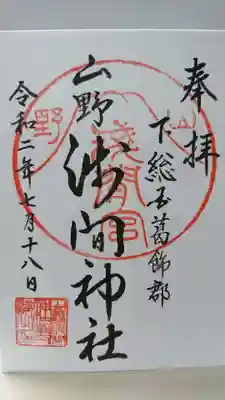 奉拝
下総国葛飾郡
山野浅間神社
令和二年七月十八日
山
野
浅間宮